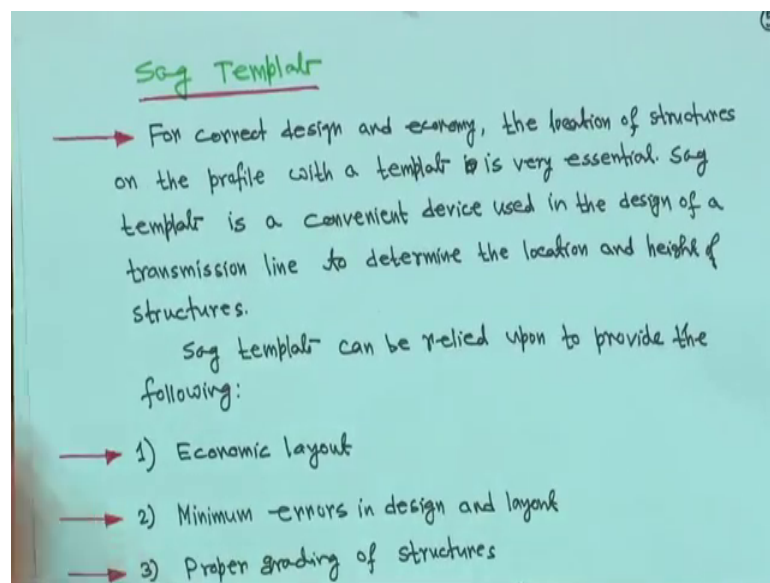 Sag Template
For correct design and economy, the location of structures
on the profile with a template is very essential. Sag
template is a convenient device used in the design of a
transmission line to determine the location and height of
structures.
Sag template can be relied upon to provide the
following:
1) Economic layout
2) Minimum errors in design and layout
3) Proper grading of structures